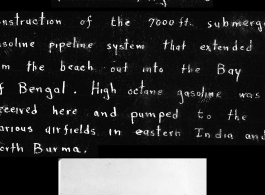 nstruction of the 7000 ft. submerg
asoline pipeline system that extended
m the beach out into the Bay
f Bengal. High octane gasoline was
eceived here and pumped to the
arious airfields in eastern India and
orth Burma.